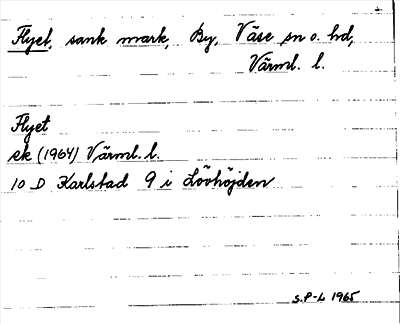 Flyet, sank mark, By, Väse sn o. hd,
Värml. l.
Flyet
ek (1964) Värml. l.
10 D Karlstad 9 i Lövhöjden
S.P-L 1965